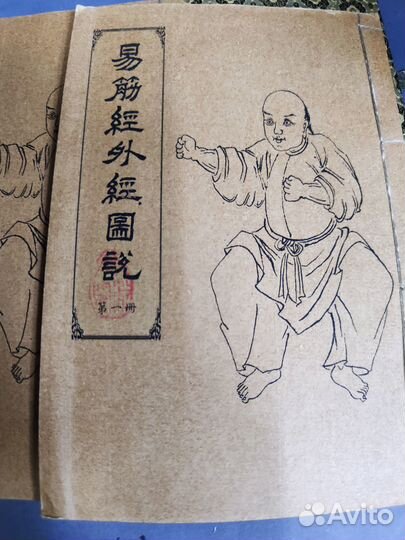 易筋經外經圖說
第一冊
Avito